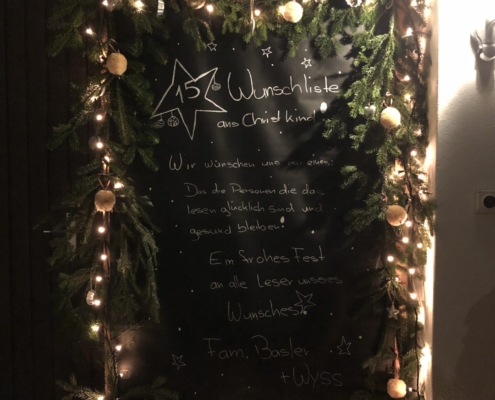 15 Wunschliste
ans Christkind
Wir wünschen uns nur eines:
Das die Personen die das
lesen glücklich sind und
gesund bleiben!
Ein frohes Fest
an alle Leser unseres
Wunsches!
Fam. Basler
+ Wyss